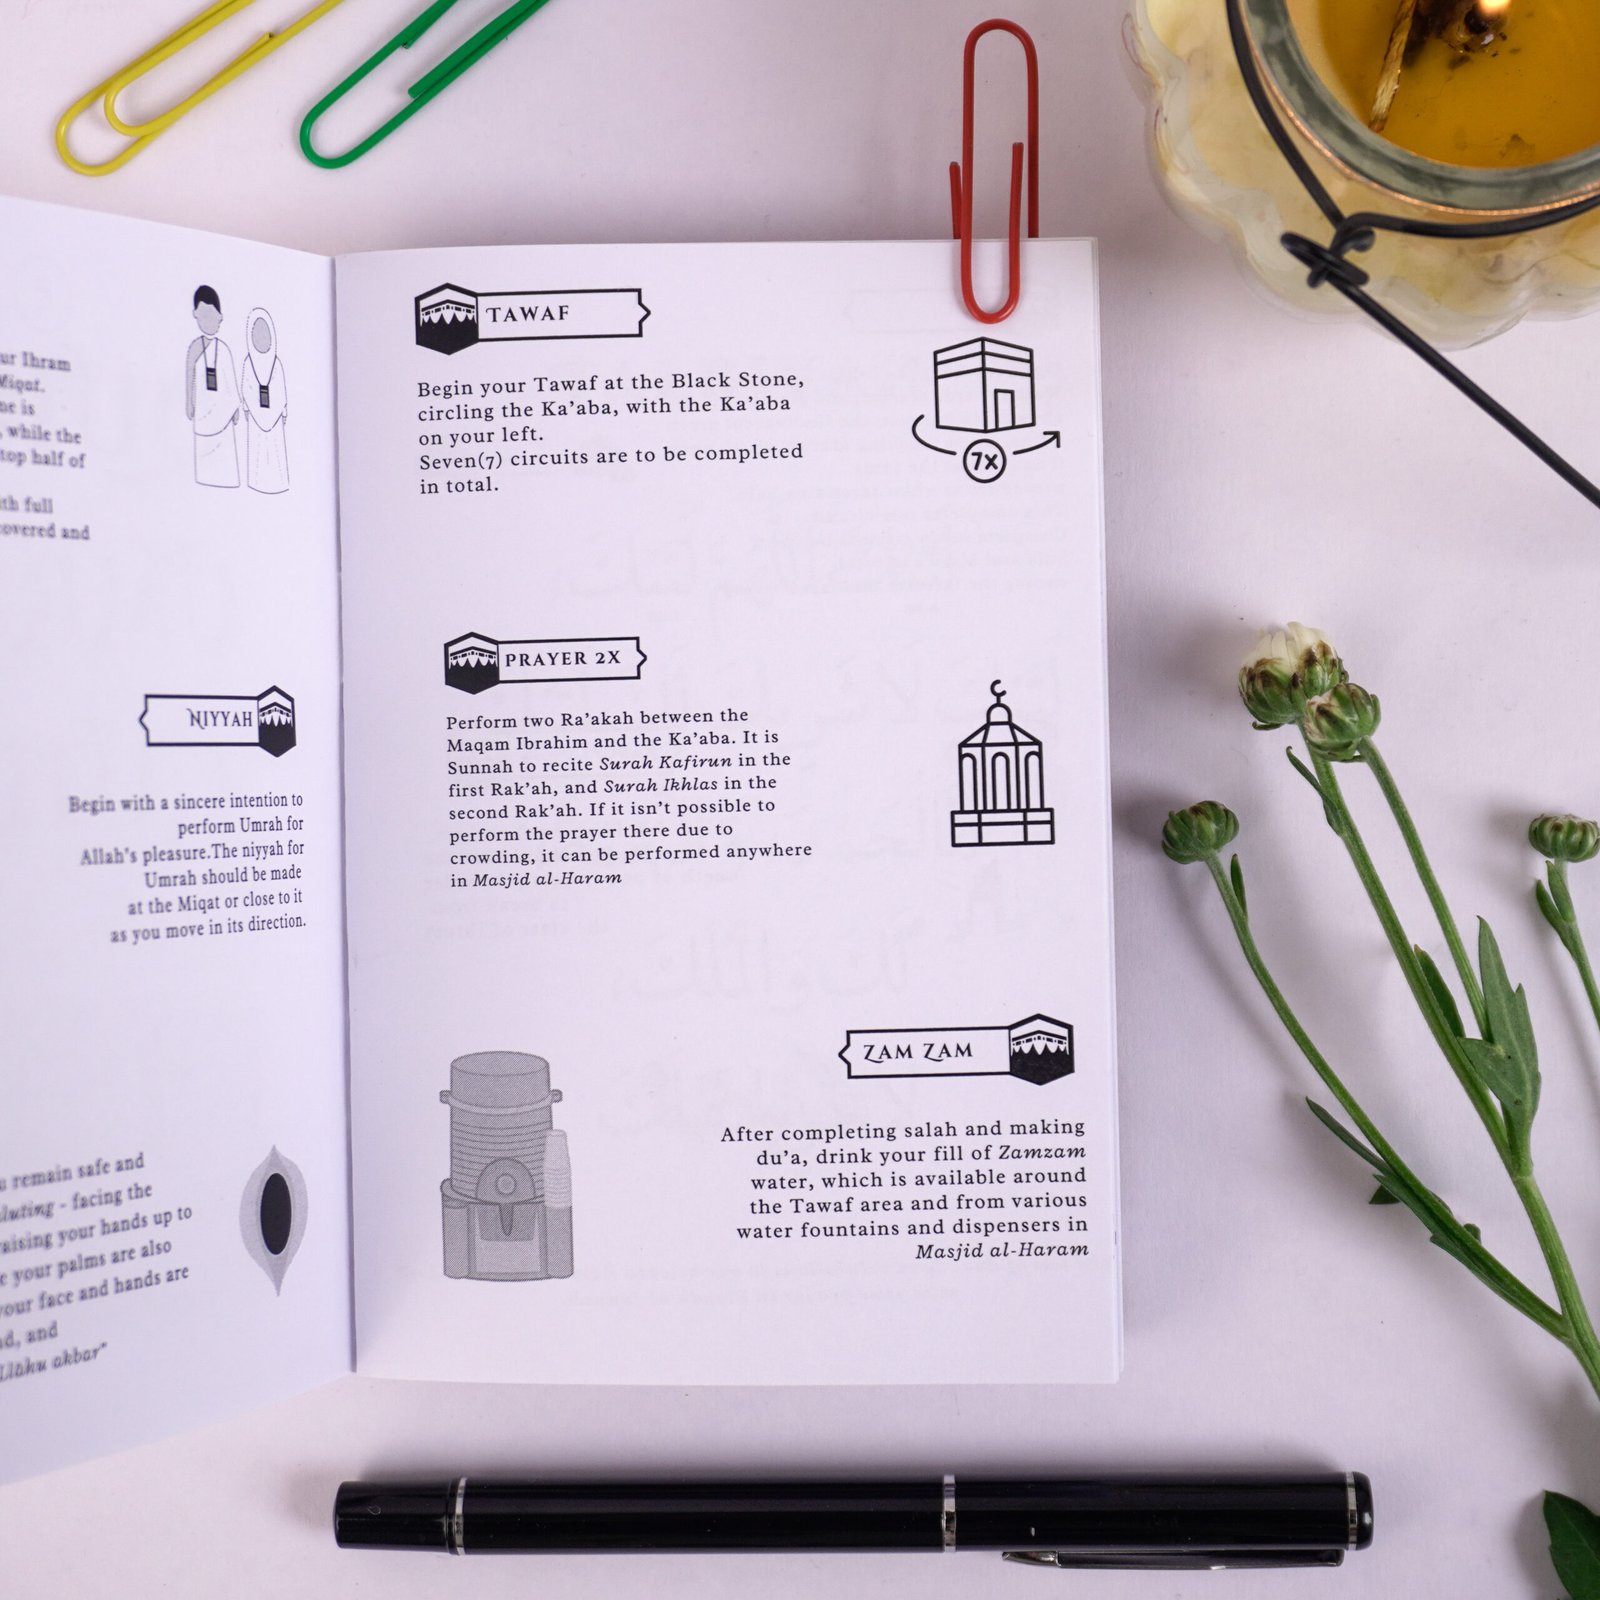 ur Ihram
Miqat.
ne is
, while the
top half of
th full
covered and
NIYYAH
Begin with a sincere intention to
perform Umrah for
Allah's pleasure.The niyyah for
Umrah should be made
at the Miqat or close to it
as you move in its direction.
u remain safe and
luting - facing the
raising your hands up to
e your palms are also
your face and hands are
d, and
Llāhu akbar"
TAWAF
Begin your Tawaf at the Black Stone,
circling the Ka'aba, with the Ka'aba
on your left.
Seven(7) circuits are to be completed
in total.
7X
PRAYER 2X
Perform two Ra'akah between the
Maqam Ibrahim and the Ka'aba. It is
Sunnah to recite Surah Kafirun in the
first Rak'ah, and Surah Ikhlas in the
second Rak'ah. If it isn't possible to
perform the prayer there due to
crowding, it can be performed anywhere
in Masjid al-Haram
ZAM ZAM
After completing salah and making
du'a, drink your fill of Zamzam
water, which is available around
the Tawaf area and from various
water fountains and dispensers in
Masjid al-Haram